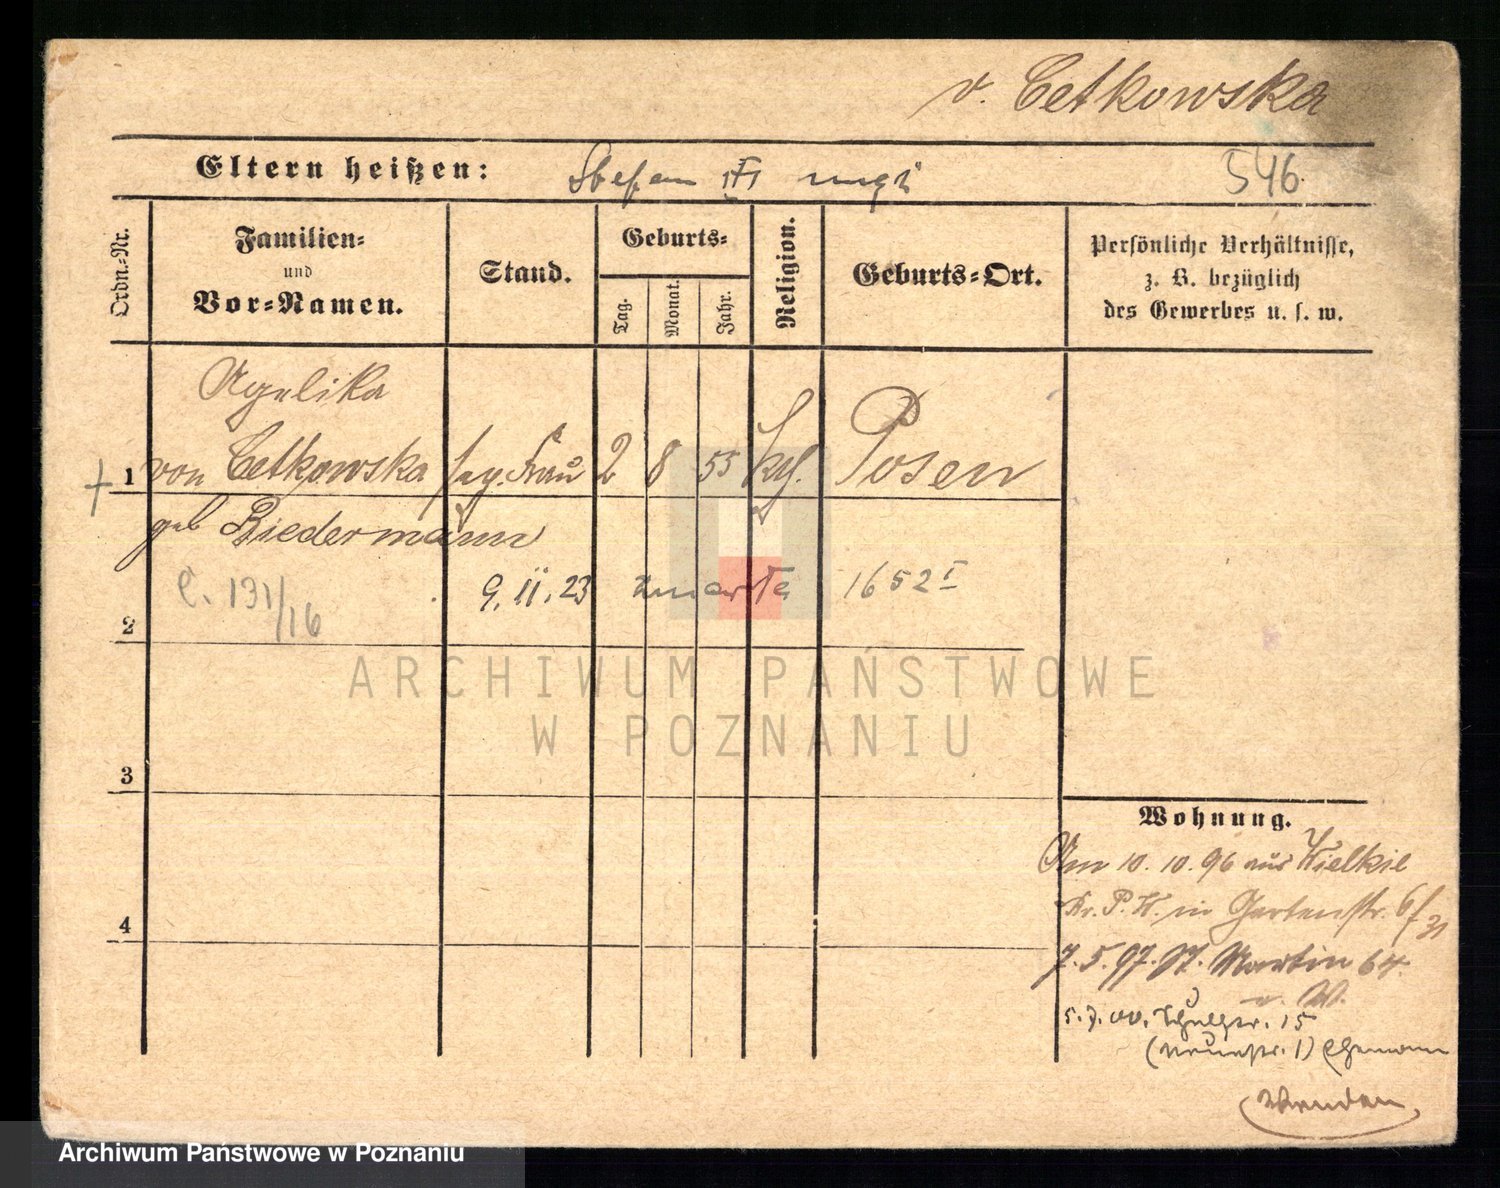 v. Cetkowska
Eltern heißen: Stefan
546
Ordn.-Nr.
Familien-
und
Vor-Namen.
Stand.
Geburts-
Tag.
Monat.
Jahr.
Religion.
Geburts-Ort.
Persönliche Verhältnisse,
z. B. bezüglich
des Gewerbes u. s. w.
Agelika
1 von Cetkowska Frau 2 8 55 kth. Posen
geb Biedermann
C. 131/16
9.II.23 zmarła 1652 I
2
ARCHIWUM PAŃSTWOWE
W POZNANIU
3
4
Wohnung.
Am 10. 10. 96 aus Wielkie
Kr. P. W. in Gartenstr. 6/31
7. 5. 97. St. Martin 64.
v. W.
5. 7. 00. 15
1) Ehemann
Archiwum Państwowe w Poznaniu